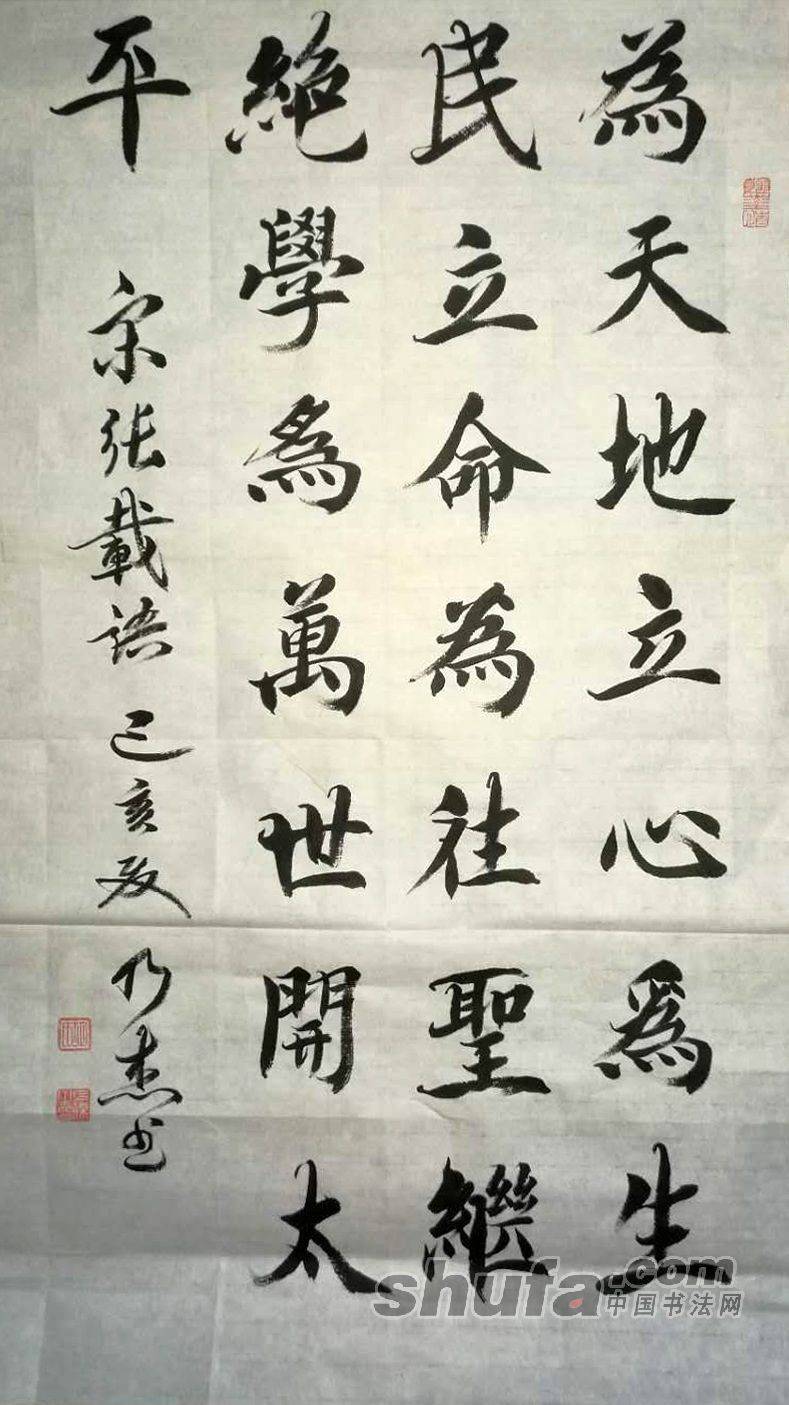 為天地立心為生
民立命為往聖繼
絶學為萬世開太
平
宋张載語 己亥夏 乃杰书
shufa.com
中国书法网